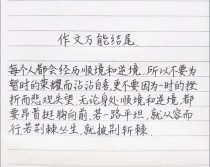 作文万能结尾
每个人都会经历顺境和逆境,所以不要为
暂时的荣耀而沾沾自喜,更不要因为一时的挫
折而悲观失望.无论身处顺境和逆境,都
要昂首挺胸向前.若一路平坦,就从容而
行若荆棘丛生,就披荆斩棘.